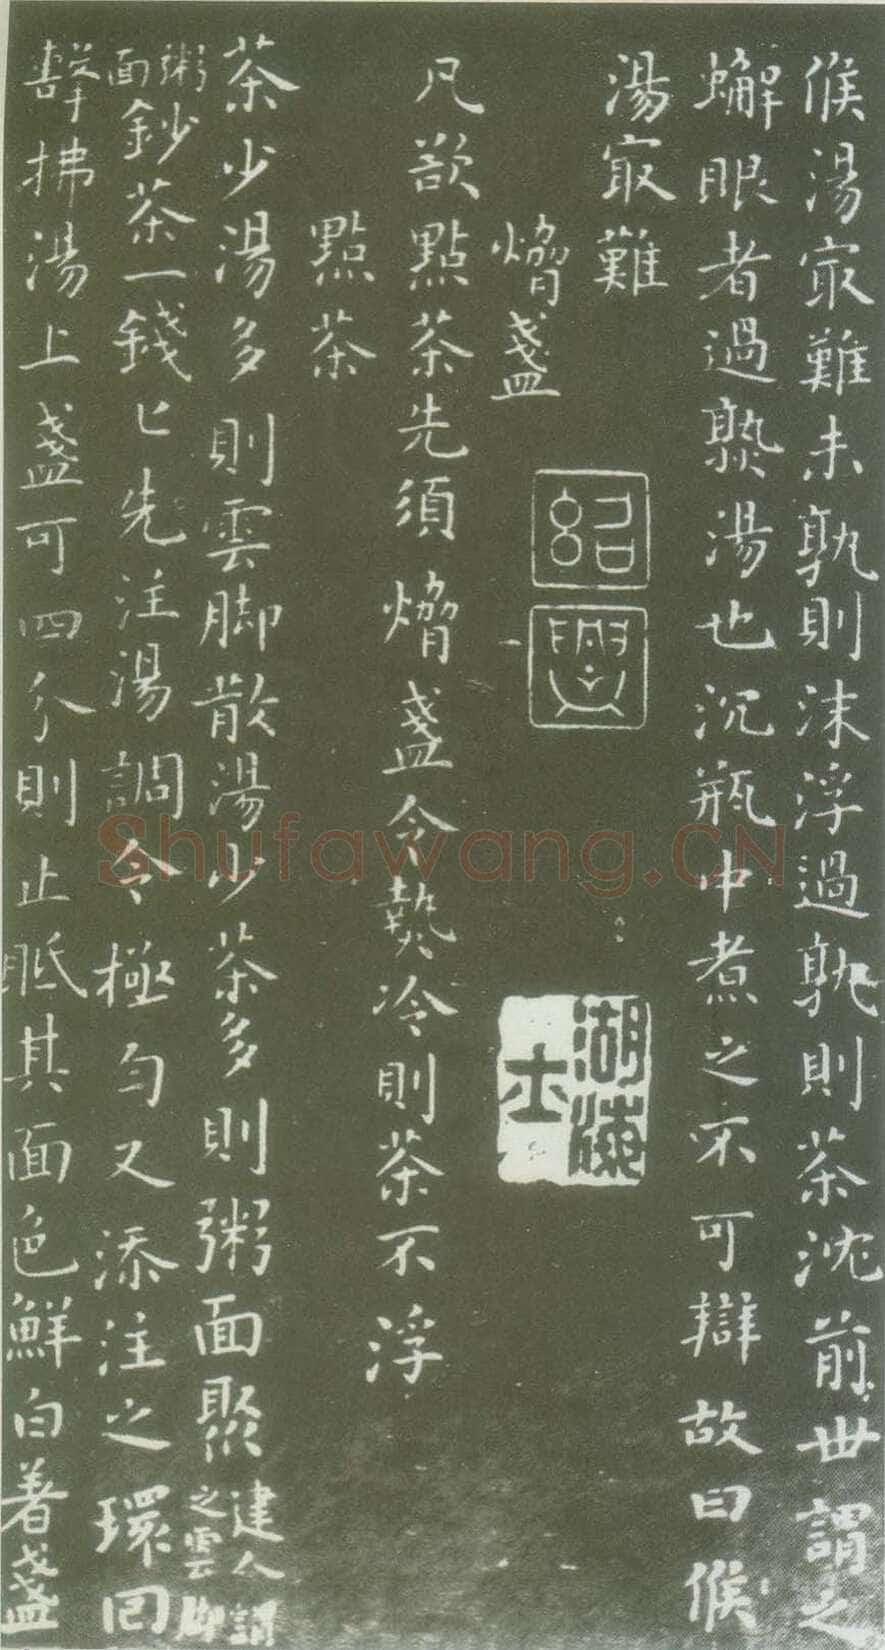 候湯冣難未孰則沫浮過孰則茶沈前世謂之
蠏眼者過熟湯也沉瓶中煮之不可辯故曰候
湯冣難
熁盞
紹興
凡欲點茶先須熁盞令熱冷則茶不浮
點茶
茶少湯多則雲脚散湯少茶多則粥面聚建人謂之雲脚
粥面鈔茶一錢匕先注湯調令極勻又添注之環回
擊拂湯上盞可四分則止眡其面色鮮白著盞
Shufawang.CN